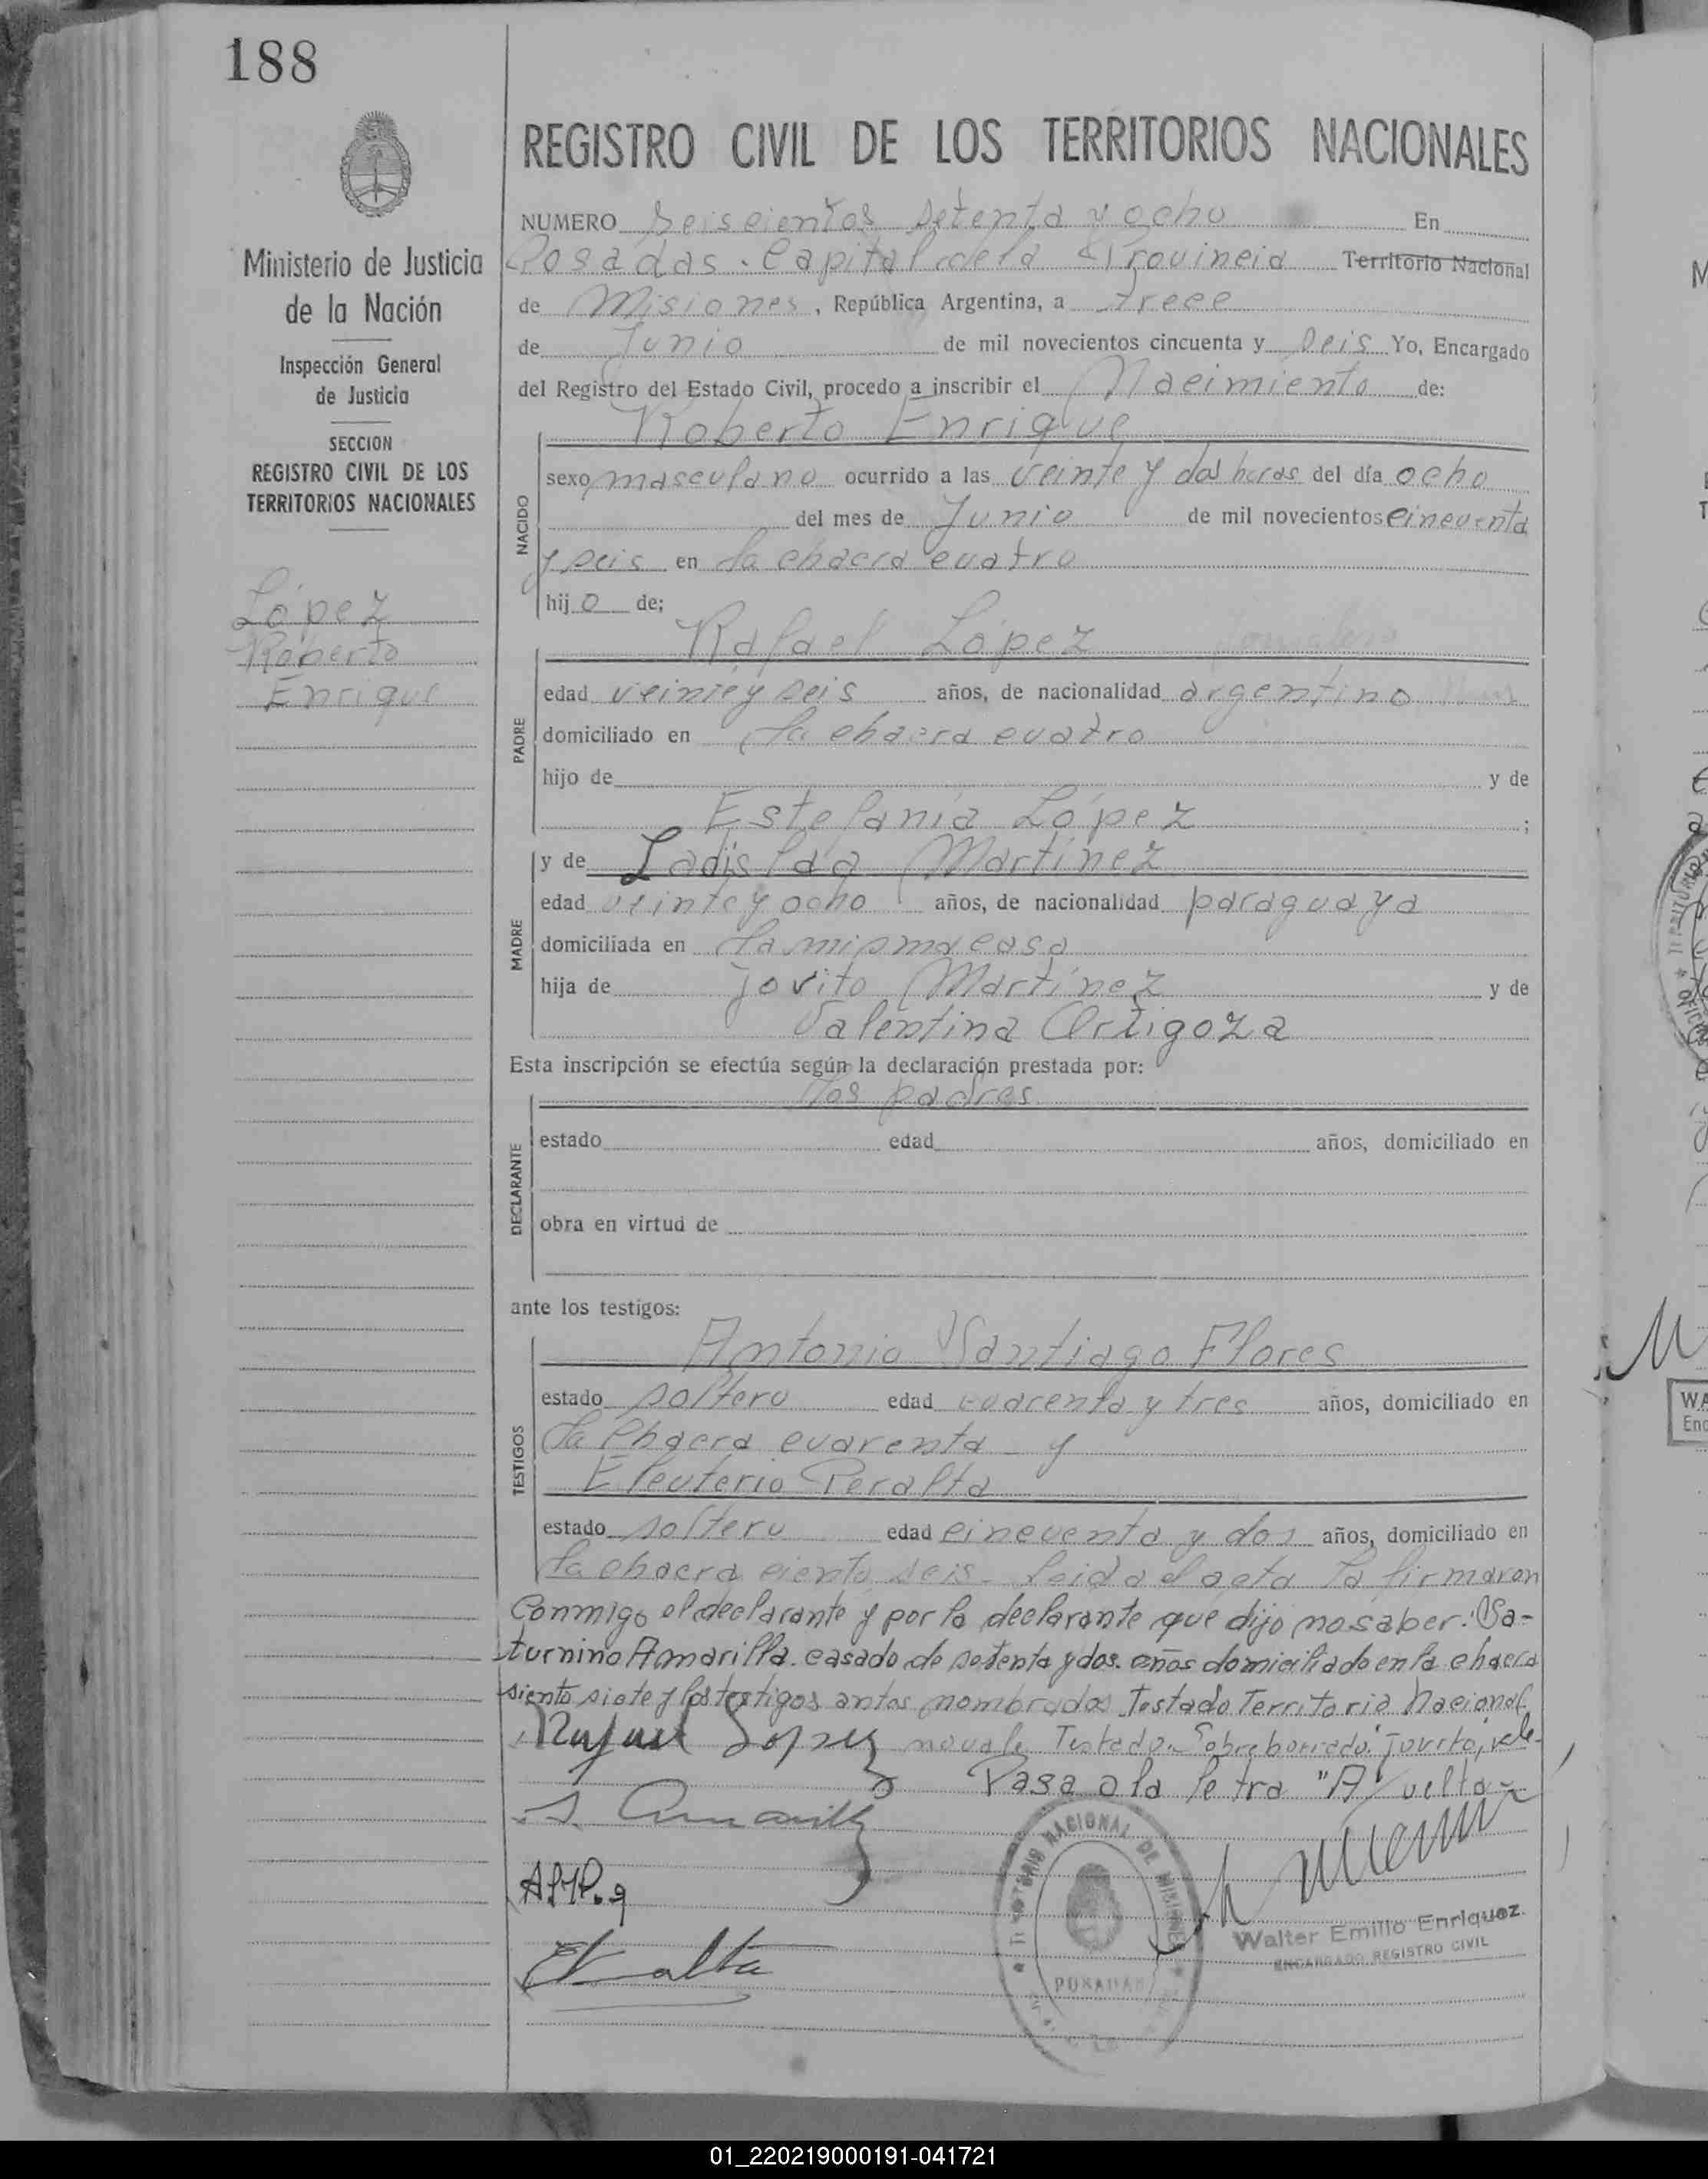 188
REGISTRO CIVIL DE LOS TERRITORIOS NACIONALES
Ministerio de Justicia
de la Nación
Inspección General
de Justicia
SECCION
REGISTRO CIVIL DE LOS
TERRITORIOS NACIONALES
López
Roberto
Enrique
NUMERO Seiscientos setenta y ocho En
Posadas. Capital de la Provincia Territorio Nacional
de Misiones, República Argentina, a trece
de Junio de mil novecientos cincuenta y seis Yo, Encargado
del Registro del Estado Civil, procedo a inscribir el Nacimiento de:
Roberto Enrique
NACIDO
sexo masculano ocurrido a las veinte y dos horas del día ocho
del mes de Junio de mil novecientos cincuenta
y seis en la chacra cuatro
hijo de;
Rafael López
PADRE
edad veinte y seis años, de nacionalidad argentino
domiciliado en la chacra cuatro
hijo de y de
Estefanía López ;
MADRE
y de Ladislaa Martínez
edad veinte y ocho años, de nacionalidad paraguaya
domiciliada en la misma casa
hija de Jovito Martínez y de
Valentina Ortigoza
Esta inscripción se efectúa según la declaración prestada por:
los padres
DECLARANTE
estado edad años, domiciliado en
obra en virtud de
ante los testigos:
Antonio Santiago Flores
TESTIGOS
estado soltero edad cuarenta y tres años, domiciliado en
la chacra cuarenta y
Eleuterio Peralta
estado soltero edad cincuenta y dos años, domiciliado en
la chacra ciento seis. Leida el acta la firmaron
Conmigo el declarante y por la declarante que dijo no saber. Sa-
turnino Amarilla. casado de setenta y dos. años domiciliado en la chacra
siento siete y los testigos antes nombrados Testado Territorio Nacional
Rafael Lopez no vale Testado. Sobreborrado: "Jovito", vale.
Pasa a la letra "A" vuelta
S. Amarilla
TERRITORIO NACIONAL DE MISIONES
POSADAS
Walter Emilio Enriquez
ENCARGADO REGISTRO CIVIL
WA
Enc
01_220219000191-041721